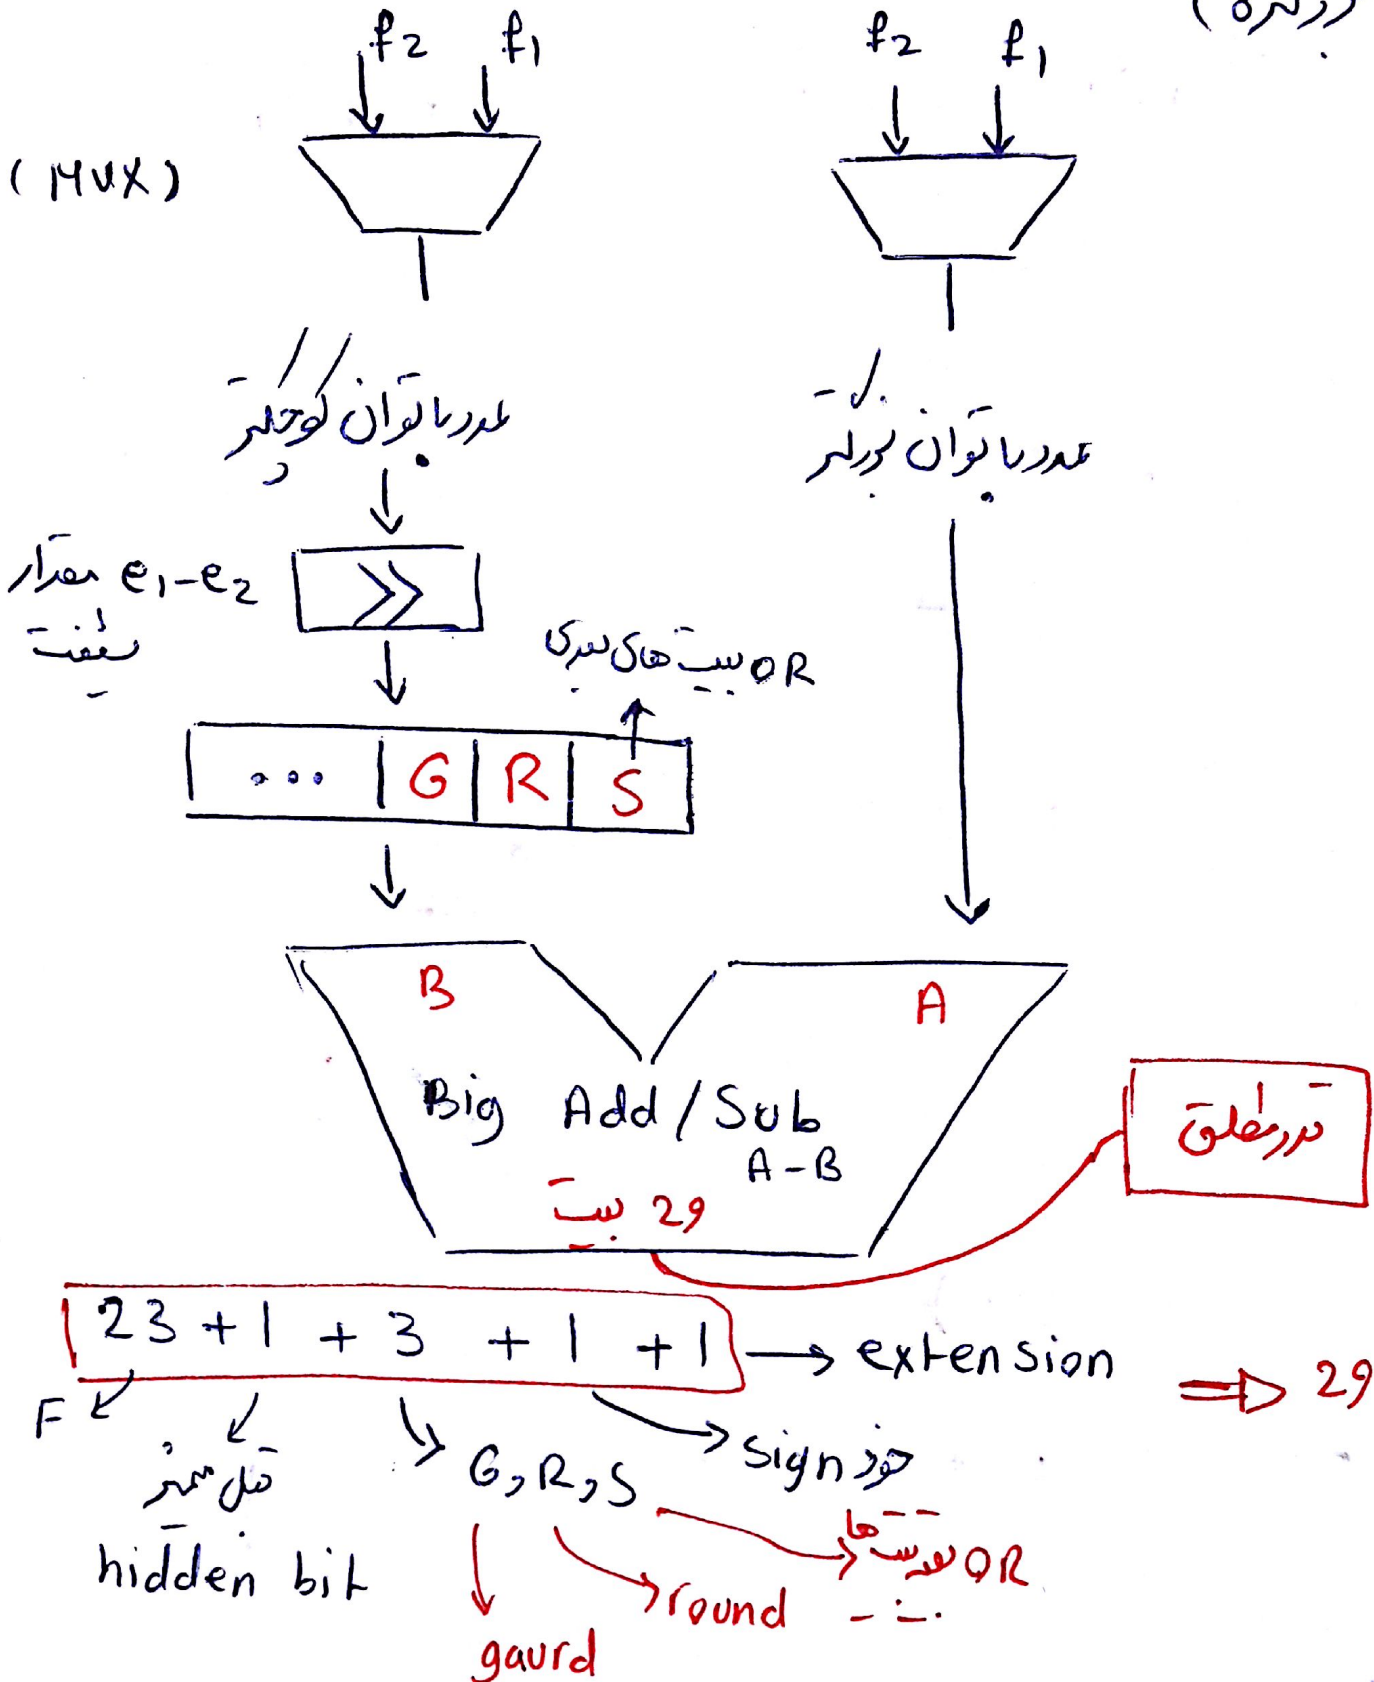 f2 f1 f2 f1
(MUX)
عدد با توان کوچکتر
عدد با توان بزرگتر
مقدار e1-e2
شیفت
>>
OR بیت های بعدی
... G R S
B A
Big Add/Sub
A-B
29 بیت
قدر مطلق
23 + 1 + 3 + 1 + 1 → extension ⇒ 29
F
قبل ممیز
hidden bit
G, R, S
خود sign
OR بقیه بیت ها
round
gaurd